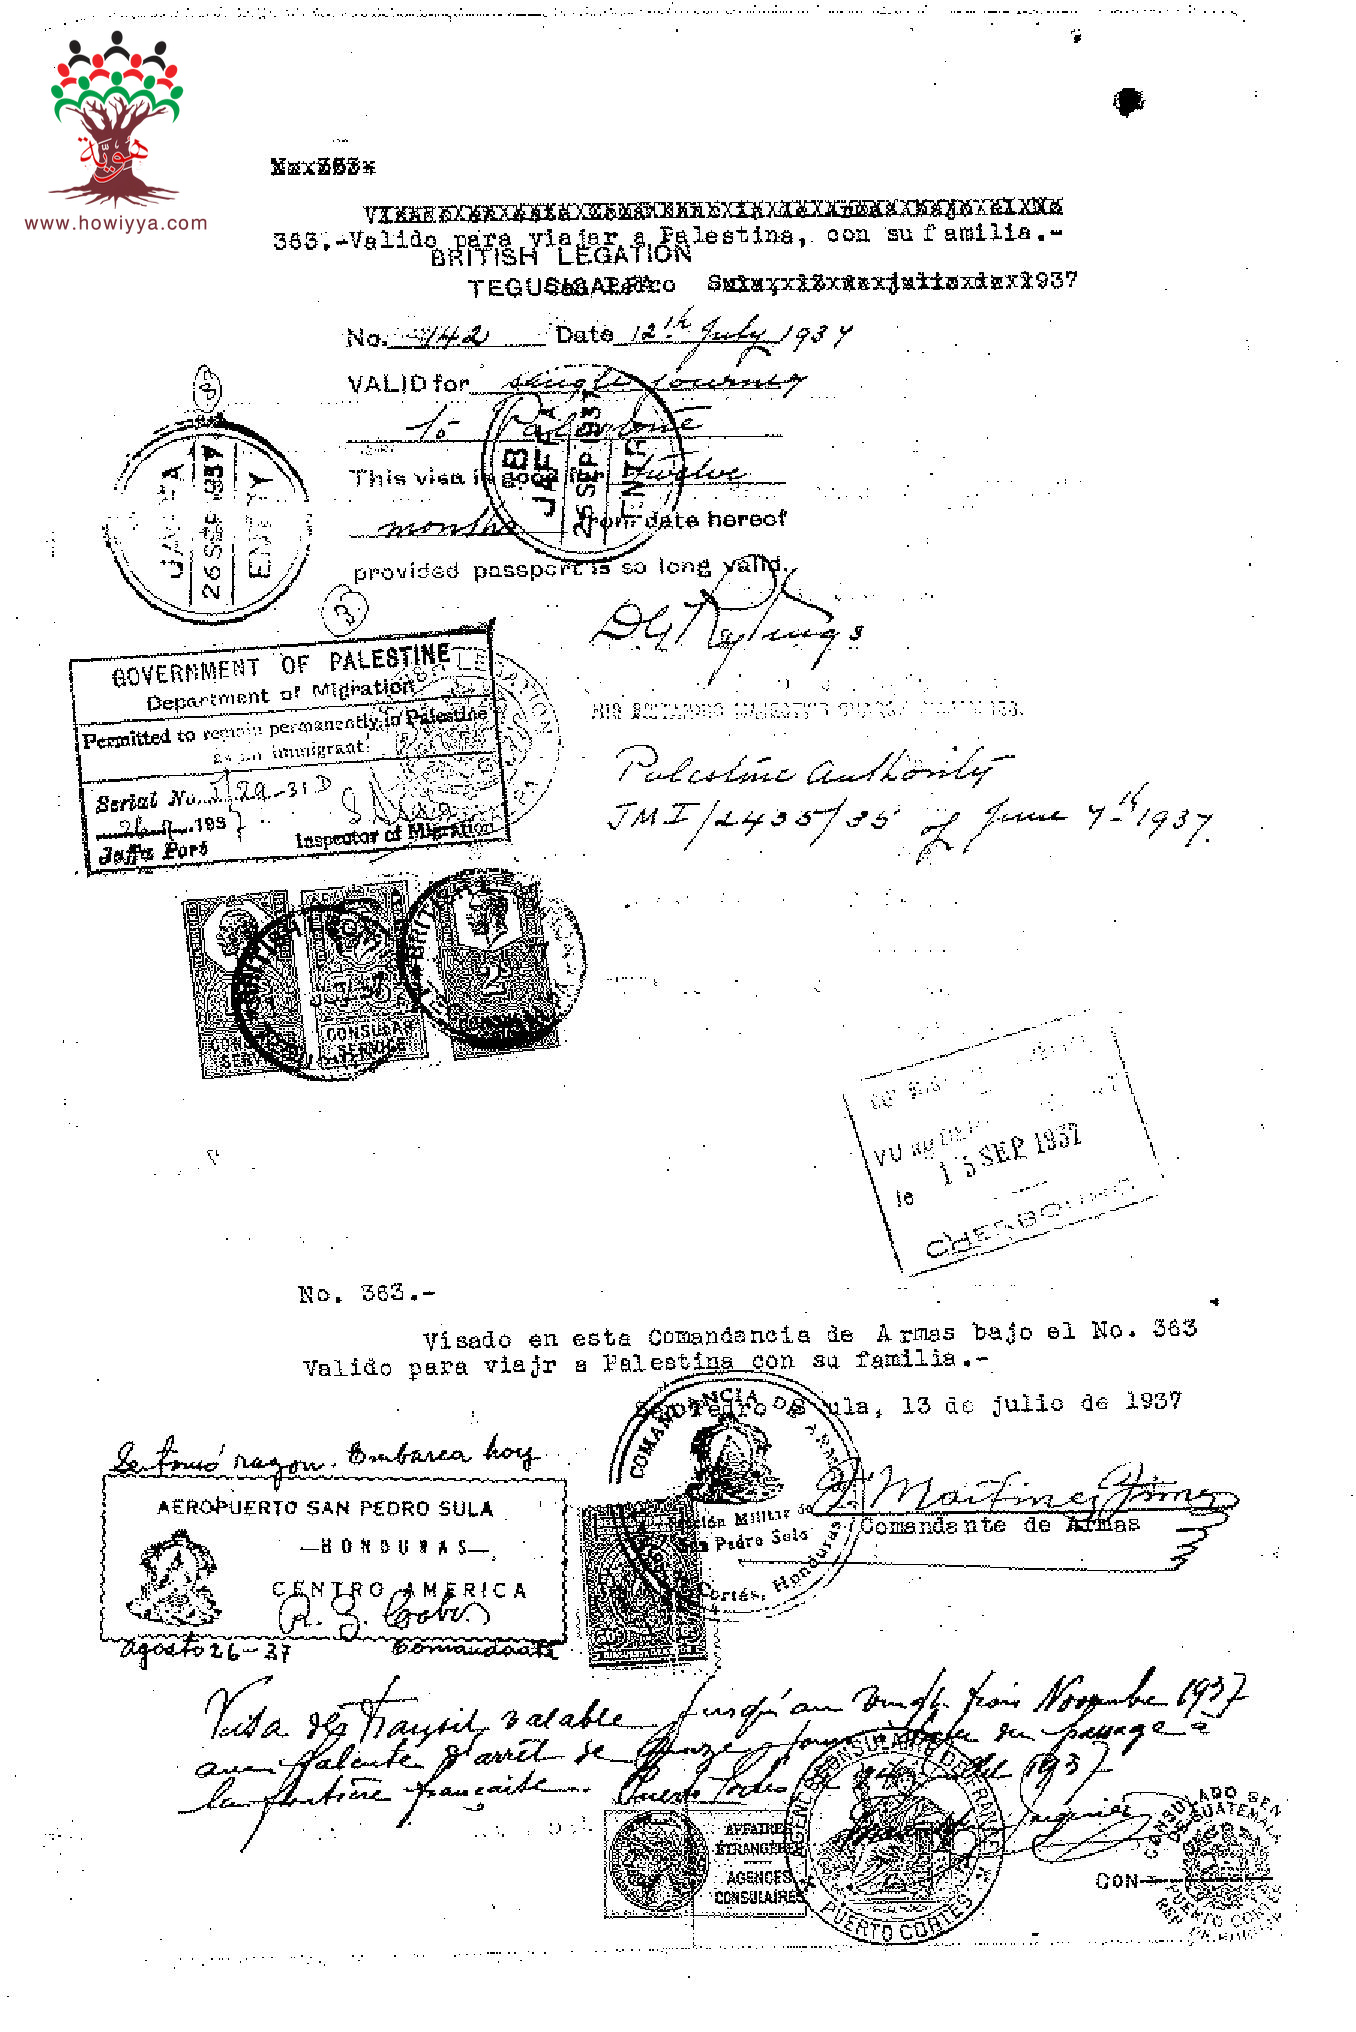 هوية
www.howiyya.com
No. 363.
363.-Valido para viajar a Palestina, con su familia.-
BRITISH LEGATION
TEGUCIGALPA
1937
No. 142 Date 12th July 1937
VALID for single journey
to Palestine
This visa is good for twelve
months from date hereof
provided passport is so long valid.
JAFFA
26 SEP 1937
ENTRY
8
JAFFA
26 SEP 1937
ENTRY
3
3
GOVERNMENT OF PALESTINE
Department of Migration
Permitted to remain permanently in Palestine
as an immigrant
Serial No.
1937
Jaffa Port
Inspector of Migration
Palestine Authority
IMI/2435/35 of June 7th 1937.
2
CONSULAR
SERVICE
CONSULAR
SERVICE
VU
le 15 SEP 1937
CHERBOURG
No. 363.-
Visado en esta Comandancia de Armas bajo el No. 363
Valido para viajr a Palestina con su familia.-
San Pedro Sula, 13 de julio de 1937
COMANDANCIA DE ARMAS
San Pedro Sula
Cortés, Honduras
Comandante de Armas
Se tomó razon. Embarca hoy
AEROPUERTO SAN PEDRO SULA
—HONDURAS—
CENTRO AMERICA
Agosto 26-37 Comandante
Visa de transit, valable jusqu'au vingt trois Novembre 1937
la frontière française. Puerto Cortes 1937
AFFAIRES
ÉTRANGÈRES
AGENCES
CONSULAIRES
AGENCE CONSULAIRE DE FRANCE
PUERTO CORTES
CONSULADO GEN
DE GUATEMALA
CON
PUERTO CORTES